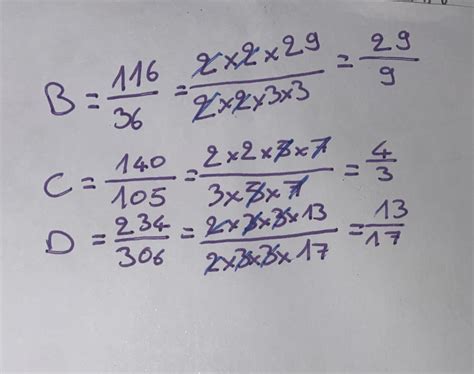 B = 116/36 = 2×2×29/2×2×3×3 = 29/9
C = 140/105 = 2×2×5×7/3×5×7 = 4/3
D = 234/306 = 2×3×3×13/2×3×3×17 = 13/17